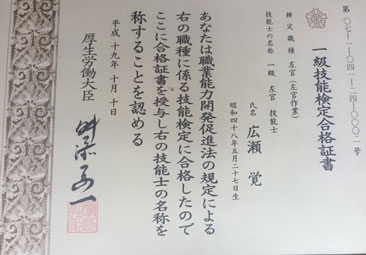 第〇七-一-〇四一-二四-〇〇〇二号
一級技能検定合格証書
検定職種 左官(左官作業)
技能士の名称 一級 左官 技能士
氏名 広瀬 覚
昭和四十八年五月二十七日生
あなたは職業能力開発促進法の規定による
右の職種に係る技能検定に合格したので
ここに合格証書を授与し右の技能士の名称を
称することを認める
平成 十九年 十月 十日
厚生労働大臣